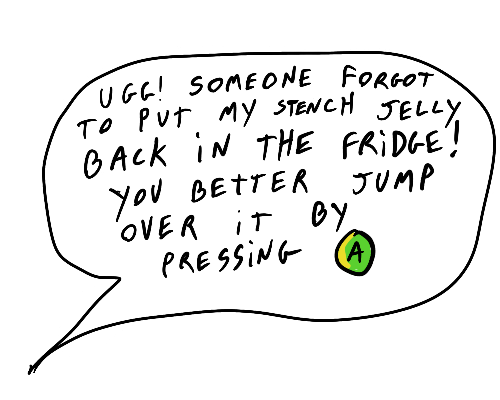 UGG! SOMEONE FORGOT
TO PUT MY STENCH JELLY
BACK IN THE FRIDGE!
YOU BETTER JUMP
OVER IT BY
PRESSING A